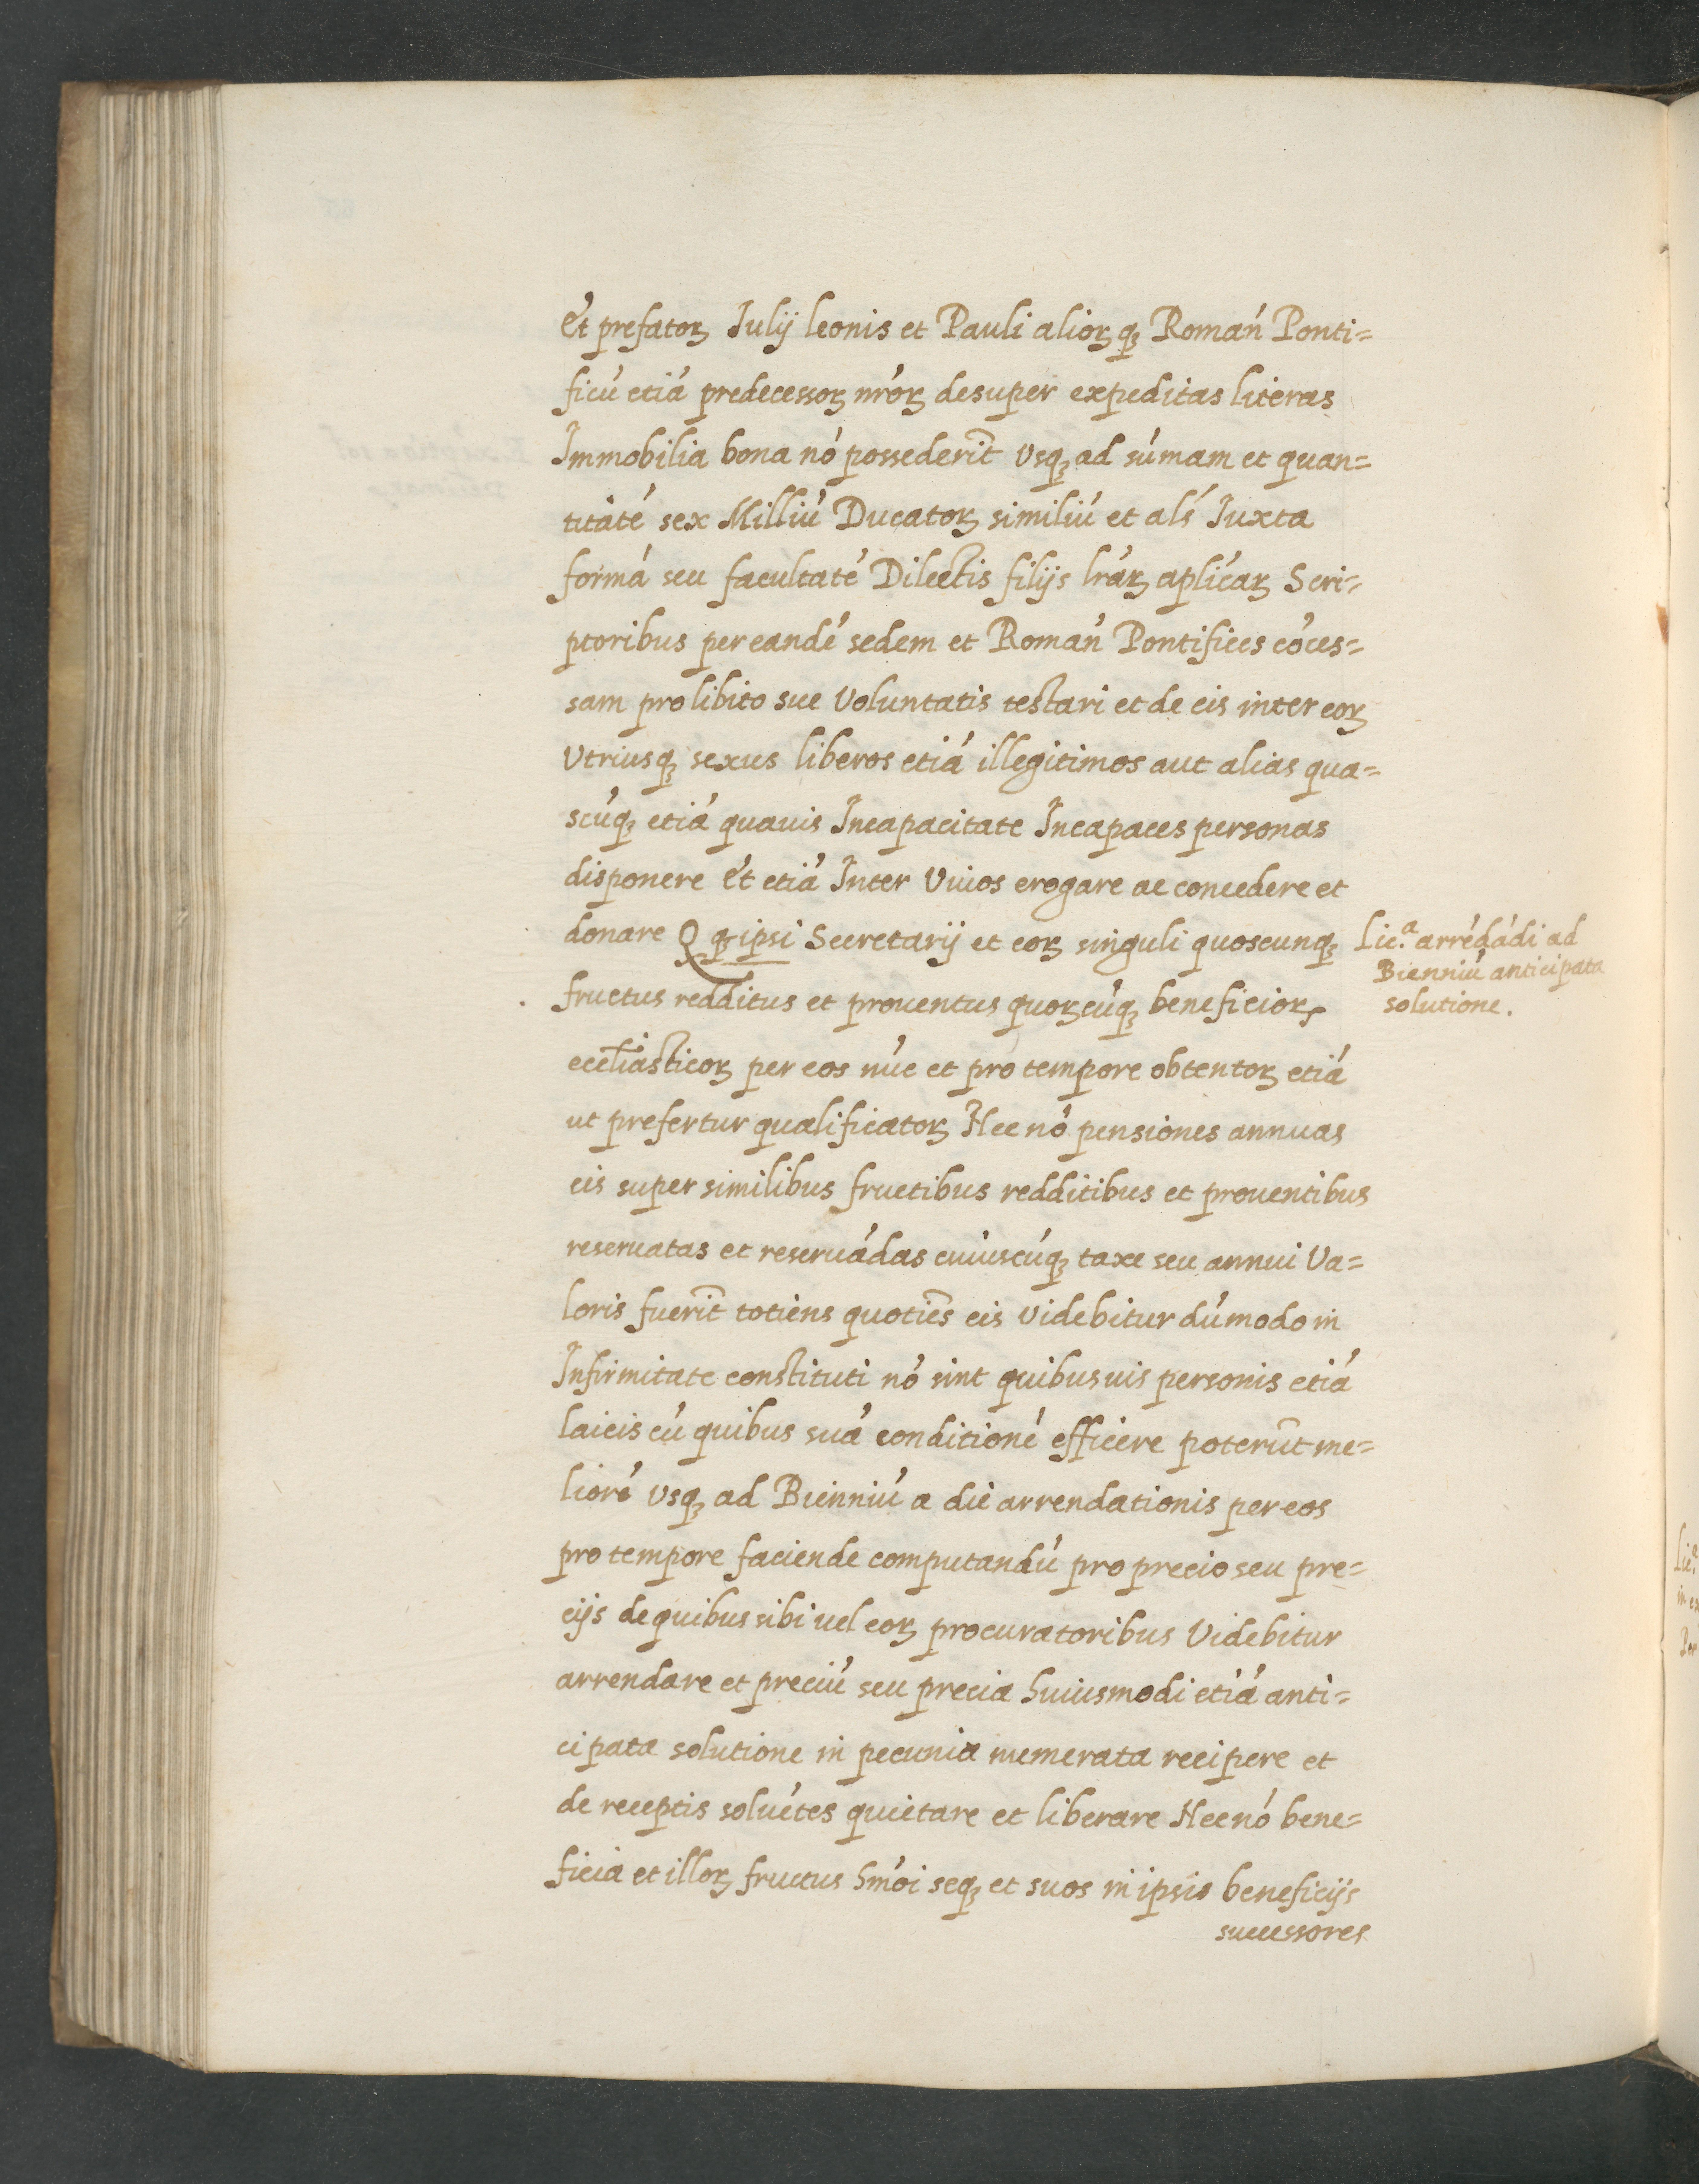 Et prefatoꝝ Julij leonis et Pauli alioꝝ qꝫ Romań Ponti=
ficú etiá predecessoꝝ nróꝝ desuper expeditas literas
Immobilia bona nó possederiт̃ Vsqꝫ ad súmam et quan=
titaté sex Milliú Ducatoꝝ similiú et alś Juxta
formá seu facultaté Dilectis filijs lráꝝ aplicáꝝ Scri=
ptoribus per eandé sedem et Romań Pontifices cóces=
sam pro libito sue Voluntatis testari et de eis inter eoꝝ
Vtriusqꝫ sexus liberos etiá illegitimos aut alias qua=
scúqꝫ etiá quauis Incapacitate Incapaces personas
disponere Et etiá Inter Viuos erogare ac concedere et
donare Q ꝙ ipsi Secretarij et eoꝝ singuli quoscunqꝫ
fructus redditus et prouentus quoꝝcúqꝫ beneficioꝝ
eccl̃iasticoꝝ per eos núc et pro tempore obtentoꝝ etiá
ut prefertur qualificatoꝝ Nec nó pensiones annuas
eis super similibus fructibus redditibus et prouentibus
reseruatas et reseruádas cuiuscúqꝫ taxe seu annui Va=
loris fuerit̃ totiens quotiẽs eis Videbitur dúmodo in
Infirmitate constituti nó sint quibusuis personis etiá
laicis cú quibus suá conditioné efficere poterũt me=
lioré Vsqꝫ ad Bienniú a die arrendationis per eos
pro tempore faciende computandú pro precio seu pre=
cijs de quibus sibi uel eoꝝ procuratoribus Videbitur
arrendare et preciú seu precia huiusmodi etiá anti=
cipata solutione in pecunia numerata recipere et
de receptis soluétes quietare et liberare Nec nó bene=
ficia et illoꝝ fructus hmói seqꝫ et suos in ipsis beneficijs
successores
Lic.ª arrédádi ad
Bienniú anticipata
solutione.